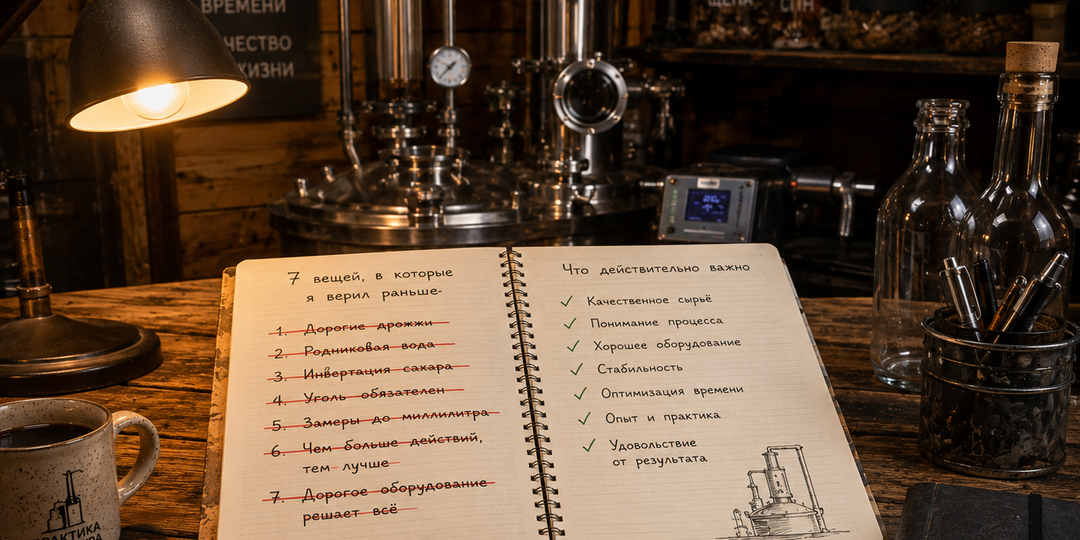 ВРЕМЕНИ
ЖИЗНИ
7 вещей, в которые
я верил раньше-
1. Дорогие дрожжи
2. Родниковая вода
3. Инвертация сахара
4. Уголь обязателен
5. Замеры до миллилитра
6. Чем больше действий,
тем лучше
7. Дорогое оборудование
решает всё
Что действительно важно
Качественное сырьё
Понимание процесса
Хорошее оборудование
Стабильность
Оптимизация времени
Опыт и практика
Удовольствие
от результата